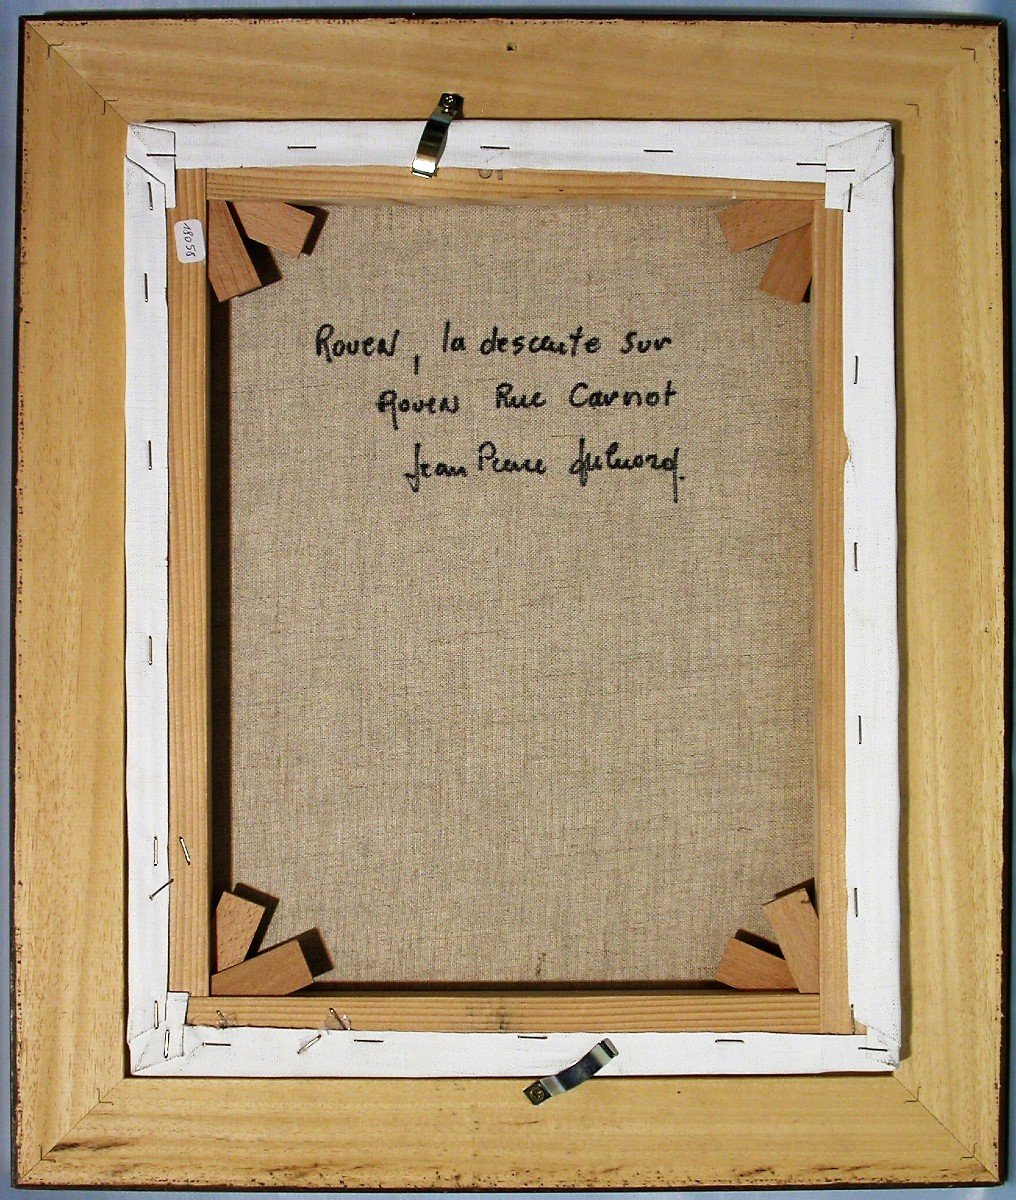 Rouen, la descente sur
Rouen Rue Carnot
Jean Pierre
18058